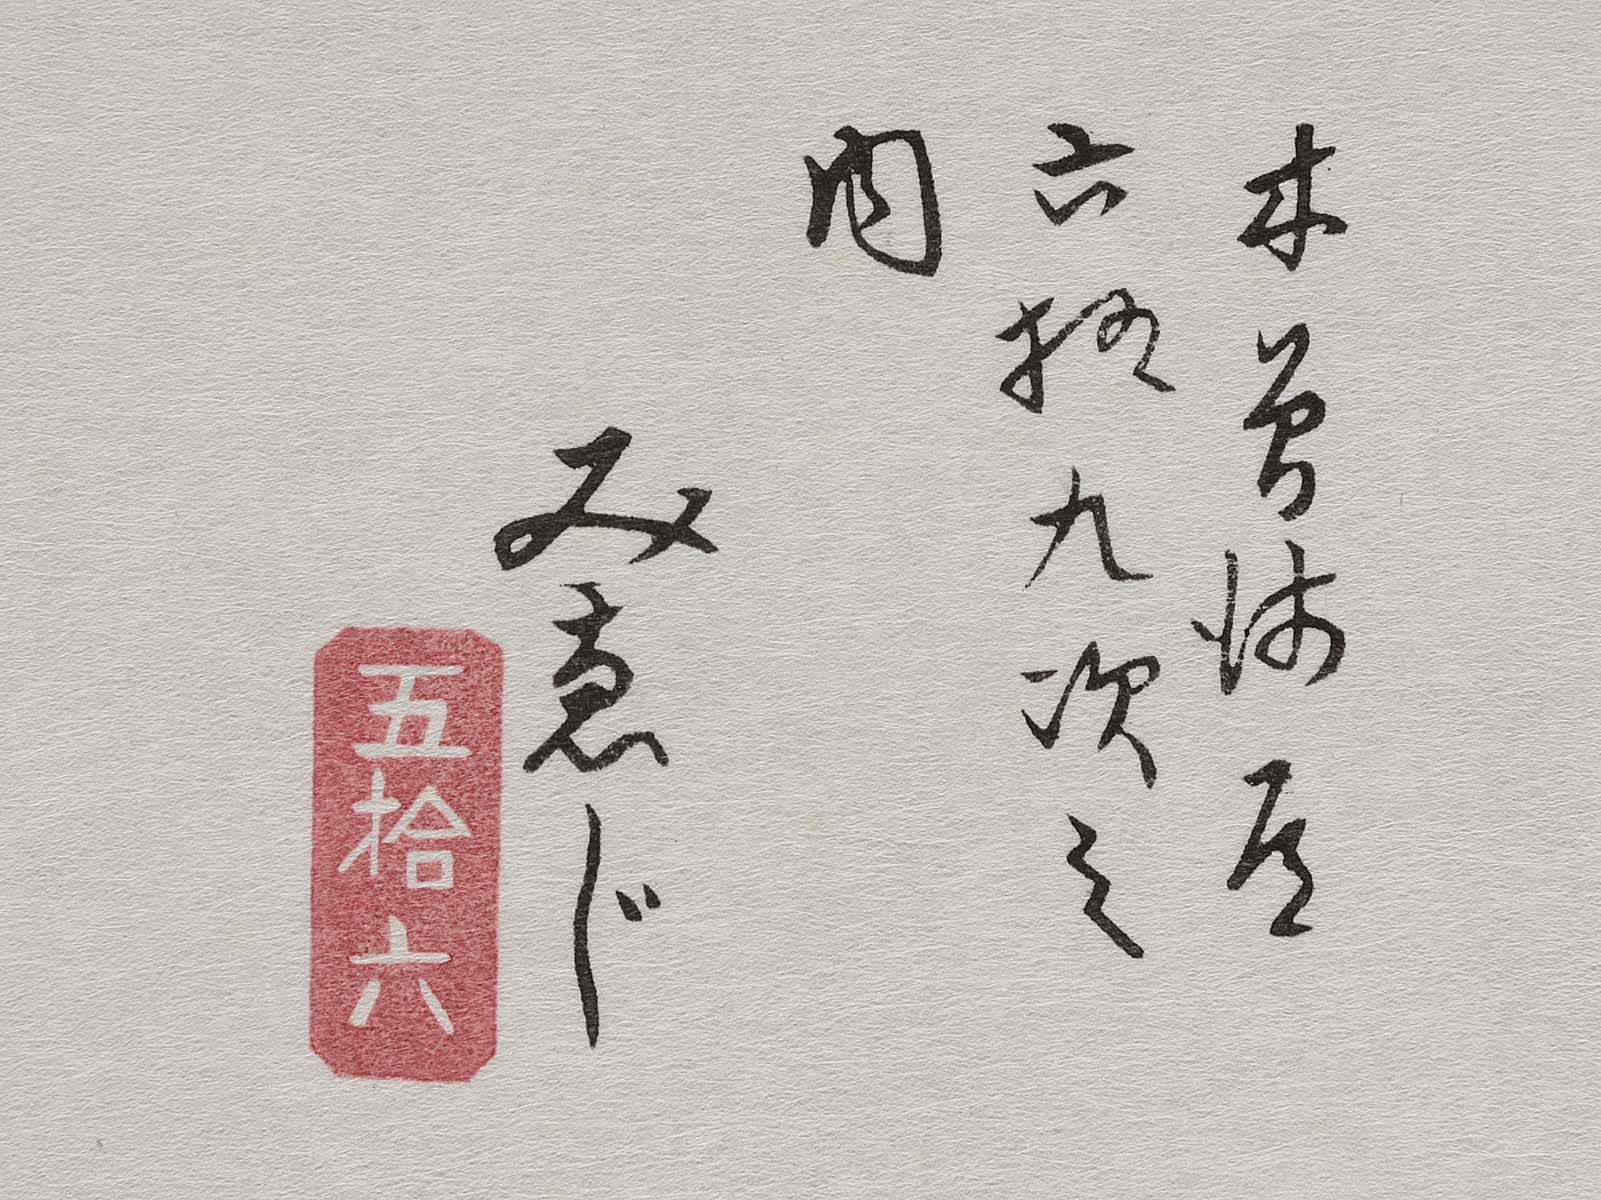 木曾海道
六拾九次之
内
みゑじ
五拾六